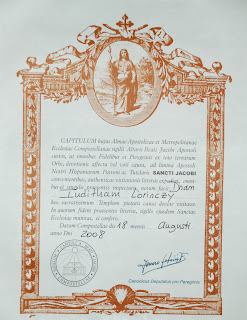 CAPITULUM hujus Almae Apostolicae et Metropolitanae
Ecclesiae Compostellanae sigilli Altaris Beati Jacobi Apostoli
custos, ut omnibus Fidelibus et Peregrinis ex toto terrarum
Orbe, devotionis affectu vel voti causa, ad limina Apostoli
Nostri Hispaniarum Patroni ac Tutelaris SANCTI JACOBI
convenientibus, authenticas visitationis litteras expediat, omni-
bus et singulis praesentes inspecturis, notum facit: Dnam
Juditham Lorinczy
hoc sacratissimum Templum pietatis causa devote visitasse.
In quorum fidem praesentes litteras, sigillo ejusdem Sanctae
Ecclesiae munitas, ei confero.
Datum Compostellae die 18 mensis Augusti
anno Dni 2008
Canonicus Deputatus pro Peregrinis